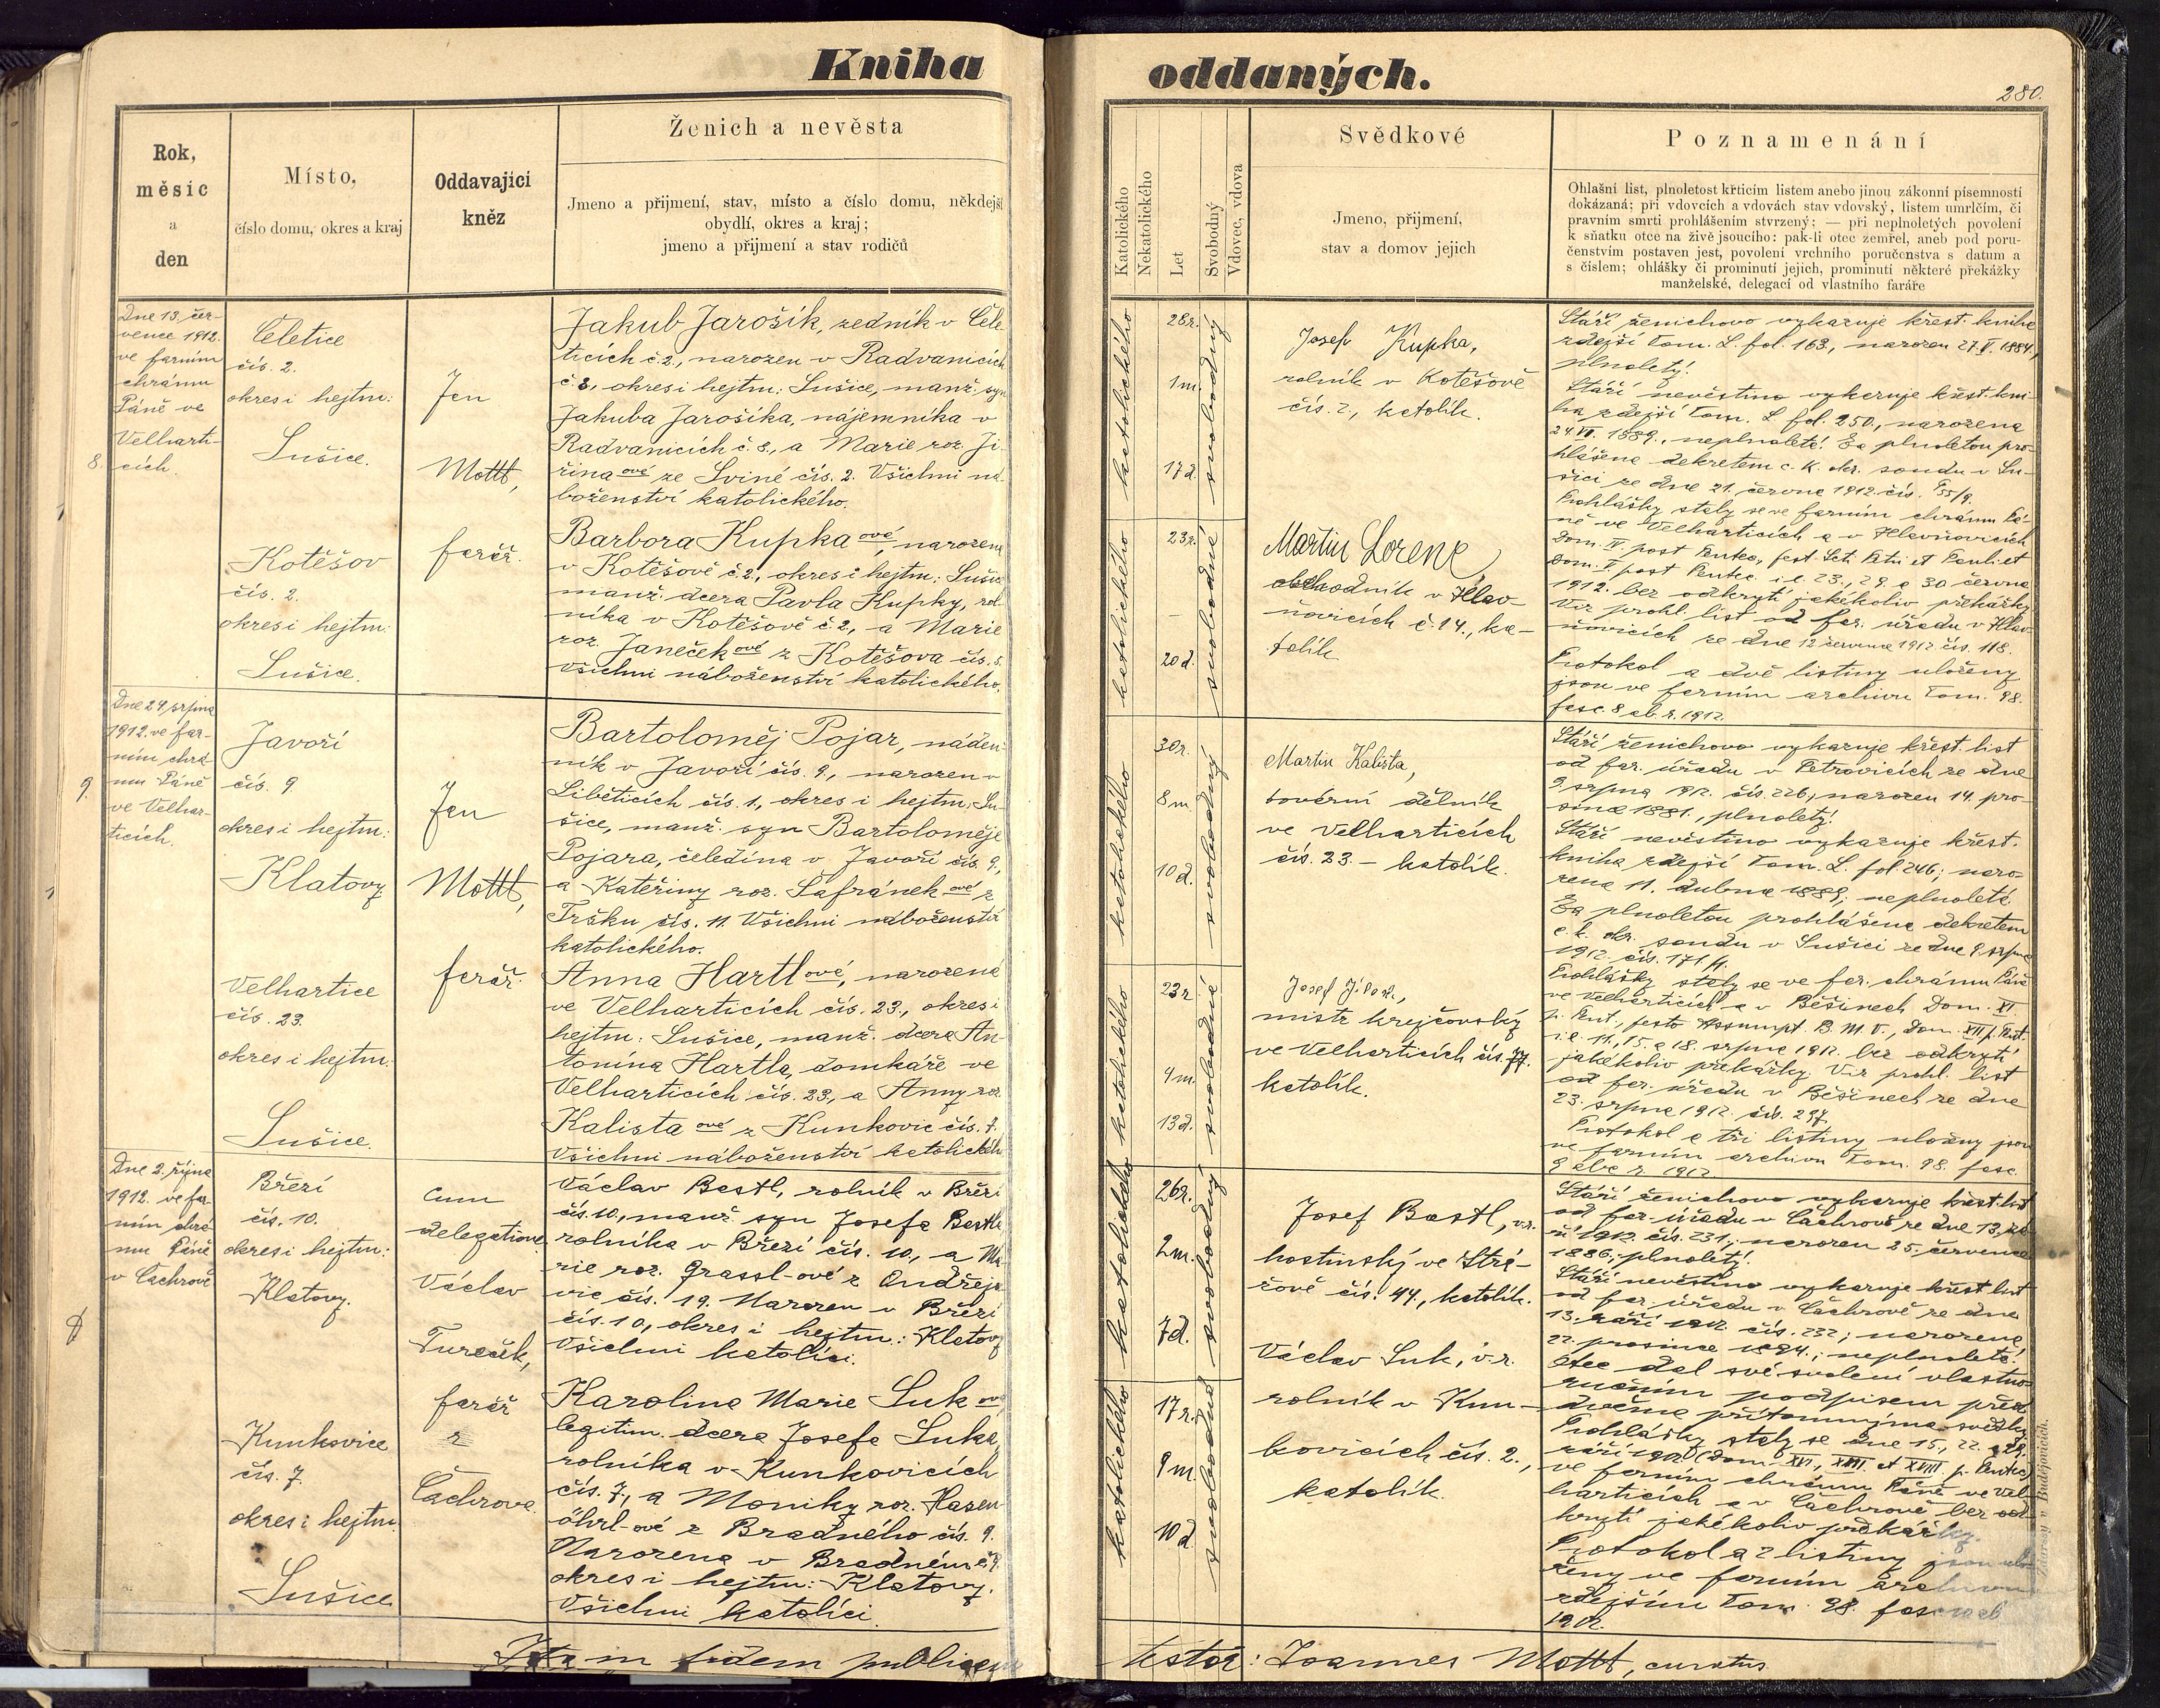 Kniha
oddaných.
280.
Rok,
měsíc
a
den
Místo,
číslo domu, okres a kraj
Oddavající
kněz
Ženich a nevěsta
Jmeno a přijmení, stav, místo a číslo domu, někdejší
obydlí, okres a kraj;
jmeno a přijmení a stav rodičů
Katolického
Nekatolického
Let
Svobodný
Vdovec, vdova
Svědkové
Jmeno, přijmení,
stav a domov jejich
Poznamenání
Ohlašní list, plnoletost křticím listem anebo jinou zákonní písemností
dokázaná; při vdovcích a vdovách stav vdovský, listem umrlčím, či
pravním smrti prohlášením stvrzený; — při neplnoletých povolení
k sňatku otce na živě jsoucího: pak-li otec zemřel, aneb pod poru-
čenstvím postaven jest, povolení vrchního poručenstva s datum a
s číslem; ohlášky či prominutí jejich, prominutí některé překážky
manželské, delegací od vlastního faráře
8.
Dne 13. čer-
vence 1912.
ve farním
chrámu
Páně ve
Velharti-
cích.
Čeletice
čís. 2.
okres i hejtm:
Sušice.
Kotěšov
čís. 2.
okres i hejtm:
Sušice.
Jan
Mottl,
farář.
Jakub Jarošík, zedník v Čele-
ticích č. 2., narozen v Radvanicích
č. 8., okres i hejtm: Sušice, manž. syn
Jakuba Jarošíka, nájemníka v
Radvanicích č. 8., a Marie roz. Ji-
řina ové ze Sviné čís. 2. Všichni ná-
boženství katolického.
Barbora Kupka ová, narozena
v Kotěšově č. 2., okres i hejtm: Sušice
manž. dcera Pavla Kupky, rol-
níka v Kotěšově č. 2., a Marie
roz. Janeček ové z Kotěšova čís. 5.
Všichni náboženství katolického.
katolického
28r.
1m.
17d.
svobodný
katolického
23r.
–
20d.
svobodná
Josef Kupka,
rolník v Kotěšově
čís. 2, katolík.
Martin Lorenc
obchodník v Hlav-
ňovicích č. 14., ka-
tolík
Stáří ženichovo vykazuje křest. kniha
zdejší tom. L. fol. 163., narozen 27. V. 1884.,
plnoletý!
Stáří nevěstino vykazuje křest. kni-
ha zdejší tom. L. fol. 250., narozena
24. VI. 1889., neplnoletá! Za plnoletou pro-
hlášena dekretem c. k. okr. soudu v Su-
šici ze dne 21. června 1912. čís.
Prohlášky staly se ve farním chrámu Pá-
ně ve Velharticích a v Hlavňovicích
Dom. IV. post Pentec, fest. Sct. Petri et Pauli et
Dom. V. post Pentec i. e. 23., 29. a 30 června
1912. bez odkrytí jakékoliv překážky.
Viz prohl. list od far. úřadu v Hlav-
ňovicích ze dne 12 července 1912. čís. 118.
Protokol a dvě listiny uloženy
jsou ve farním archivu Tom. 98.
fasc 8 ab. r. 1912.
9.
Dne 24 srpna
1912. ve far-
ním chrá-
mu Páně
ve Velhar-
ticích.
Javoří
čís. 9
okres i hejtm:
Klatovy
Velhartice
čís. 23.
okres i hejtm:
Sušice.
Jan
Mottl,
farář.
Bartoloměj Pojar, náden-
ník v Javoří čís. 9., narozen v
Liběticích čís. 1., okres i hejtm: Su-
šice, manž. syn Bartoloměje
Pojara, čeledína v Javoří čís. 9.,
a Kateřiny roz. Šafránek ové z
Tršku čís. 11. Všichni náboženství
katolického.
Anna Hartlová, narozená
ve Velharticích čís. 23., okres i
hejtm: Sušice, manž. dcera An-
tonína Hartla, domkáře ve
Velharticích čís. 23., a Anny roz.
Kalista ové z Kunkovic čís. 7.
Všichni náboženství katolického
katolického
30r.
8m.
10d.
svobodný
katolického
23r
4m.
13d.
svobodná
Martin Kalista,
tovární dělník
ve Velharticích
čís. 23. – katolík.
Josef
mistr krejčovský
ve Velharticích čís. 77.
katolík.
Stáří ženichovo vykazuje křest. list
od far. úřadu v Petrovicích ze dne
9 srpna 1912. čís. 226; narozen 14. pro-
since 1881., plnoletý!
Stáří nevěstino vykazuje křest.
kniha zdejší tom. L. fol. 246; naro-
zena 11. dubna 1889; neplnoletá.
Za plnoletou prohlášena dekretem
c. k. okr. soudu v Sušici ze dne 9 srpna
1912. čís.
Prohlášky staly se ve far. chrámu Páně
ve Velharticích a v Běšinech Dom. XI
p. Pent., festo Assumpt. B. M. V., Dom. XII p. Pent.
i. e. 11., 15. a 18. srpna 1912. bez odkrytí
jakékoliv překážky. Viz prohl. list
od far. úřadu v Běšinech ze dne
23. srpna 1912. čís. 297.
Protokol a tři listiny uloženy jsou
ve farním archivu Tom. 98. fasc.
9 abe r. 1912
Dne 2. října
1912. ve far-
ním chrá-
mu Páně
v Čachrově
Březí
čís. 10.
okres i hejtm:
Klatovy.
Kunkovice
čís. 7.
okres i hejtm.
Sušice
cum
delegatione
Václav
Tureček,
farář
z
Čachrova.
Václav Bastl, rolník v Březí
čís. 10, manž. syn Josefa Bastla
rolníka v Březí čís. 10, a Ma-
rie roz. Grassl-ové z Ondřejo-
vic čís. 19. Narozen v Březí
čís. 10, okres i hejtm.: Klatovy
Všichni katolíci.
Karolina Marie Suk ová
legitim. dcera Josefa Suka,
rolníka v Kunkovicích
čís. 7., a Moniky roz. Hasen-
öhrl-ové z Bradného čís. 9.
Narozena v Bradném č. 9.
okres i hejtm: Klatovy.
Všichni katolíci.
katolického
26r.
2m.
7d.
svobodný
katolického
17r.
9m.
10d.
svobodná
Josef Bastl, v.r.
hostinský ve Strá-
žově čís. 44., katolík.
Václav Suk, v. r.
rolník v Kun-
kovicích čís. 2.,
katolík.
Stáří ženichovo vykazuje křest. list
od far. úřadu v Čachrově ze dne 13. zá-
ří 1912. čís. 231; narozen 25. července
1886; plnoletý!
Stáří nevěstino vykazuje křest. list
od far. úřadu v Čachrově ze dne
13. září 1912. čís. 232; narozena
22. prosince 1894.; neplnoletá!
Otec dal své svolení vlastno-
ručním podpisem před
dvěma přítomnýma svědky
Prohlášky staly se dne 15., 22. a 29.
září 1912 (Dom. XVI., XVII. et XVIII. p. Pentec)
ve farním chrámu Páně ve Vel-
harticích a v Čachrově bez od-
krytí jakékoliv překážky.
Protokol a 2 listiny jsou ulo-
ženy ve farním archivu
zdejším tom. 98. fasc
1912.
v Budějovicích.
Ita in fidem publicam
testor: Joannes Mottl, curatus